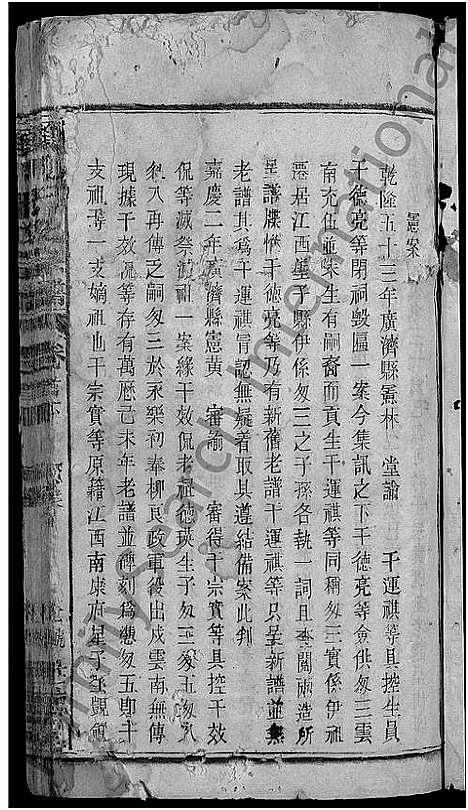 憲案
乾隆五十三年廣濟縣憲林 堂諭 干運祺等具控生員
干德亮等閉祠毀匾一案今集訊之下干德亮等僉供匆三雲
南充伍並未生有嗣裔而貢生干運祺等同稱匆三實係伊祖
遷居江西星子縣伊係匆三之子孫各執一詞且事關兩造所
呈譜牒惟干德亮等乃有新舊老譜干運祺等只呈新譜並無
老譜其為干運祺冒認無疑着取具遵結備案此判
嘉慶二年廣濟縣憲黃 審諭 審得干宗實等具控干效
侃等滅祭 祖一案緣干效侃老祖德英生子匆三匆五匆八
匆八再傳乏嗣匆三於永樂初奉柳良政軍役出戍雲南無傳
現據干效侃等存有萬曆己未年老譜並碑刻為總匆五則十
支祖等一支嫡祖也干宗實等原籍江西南康府星子縣
Family Search International